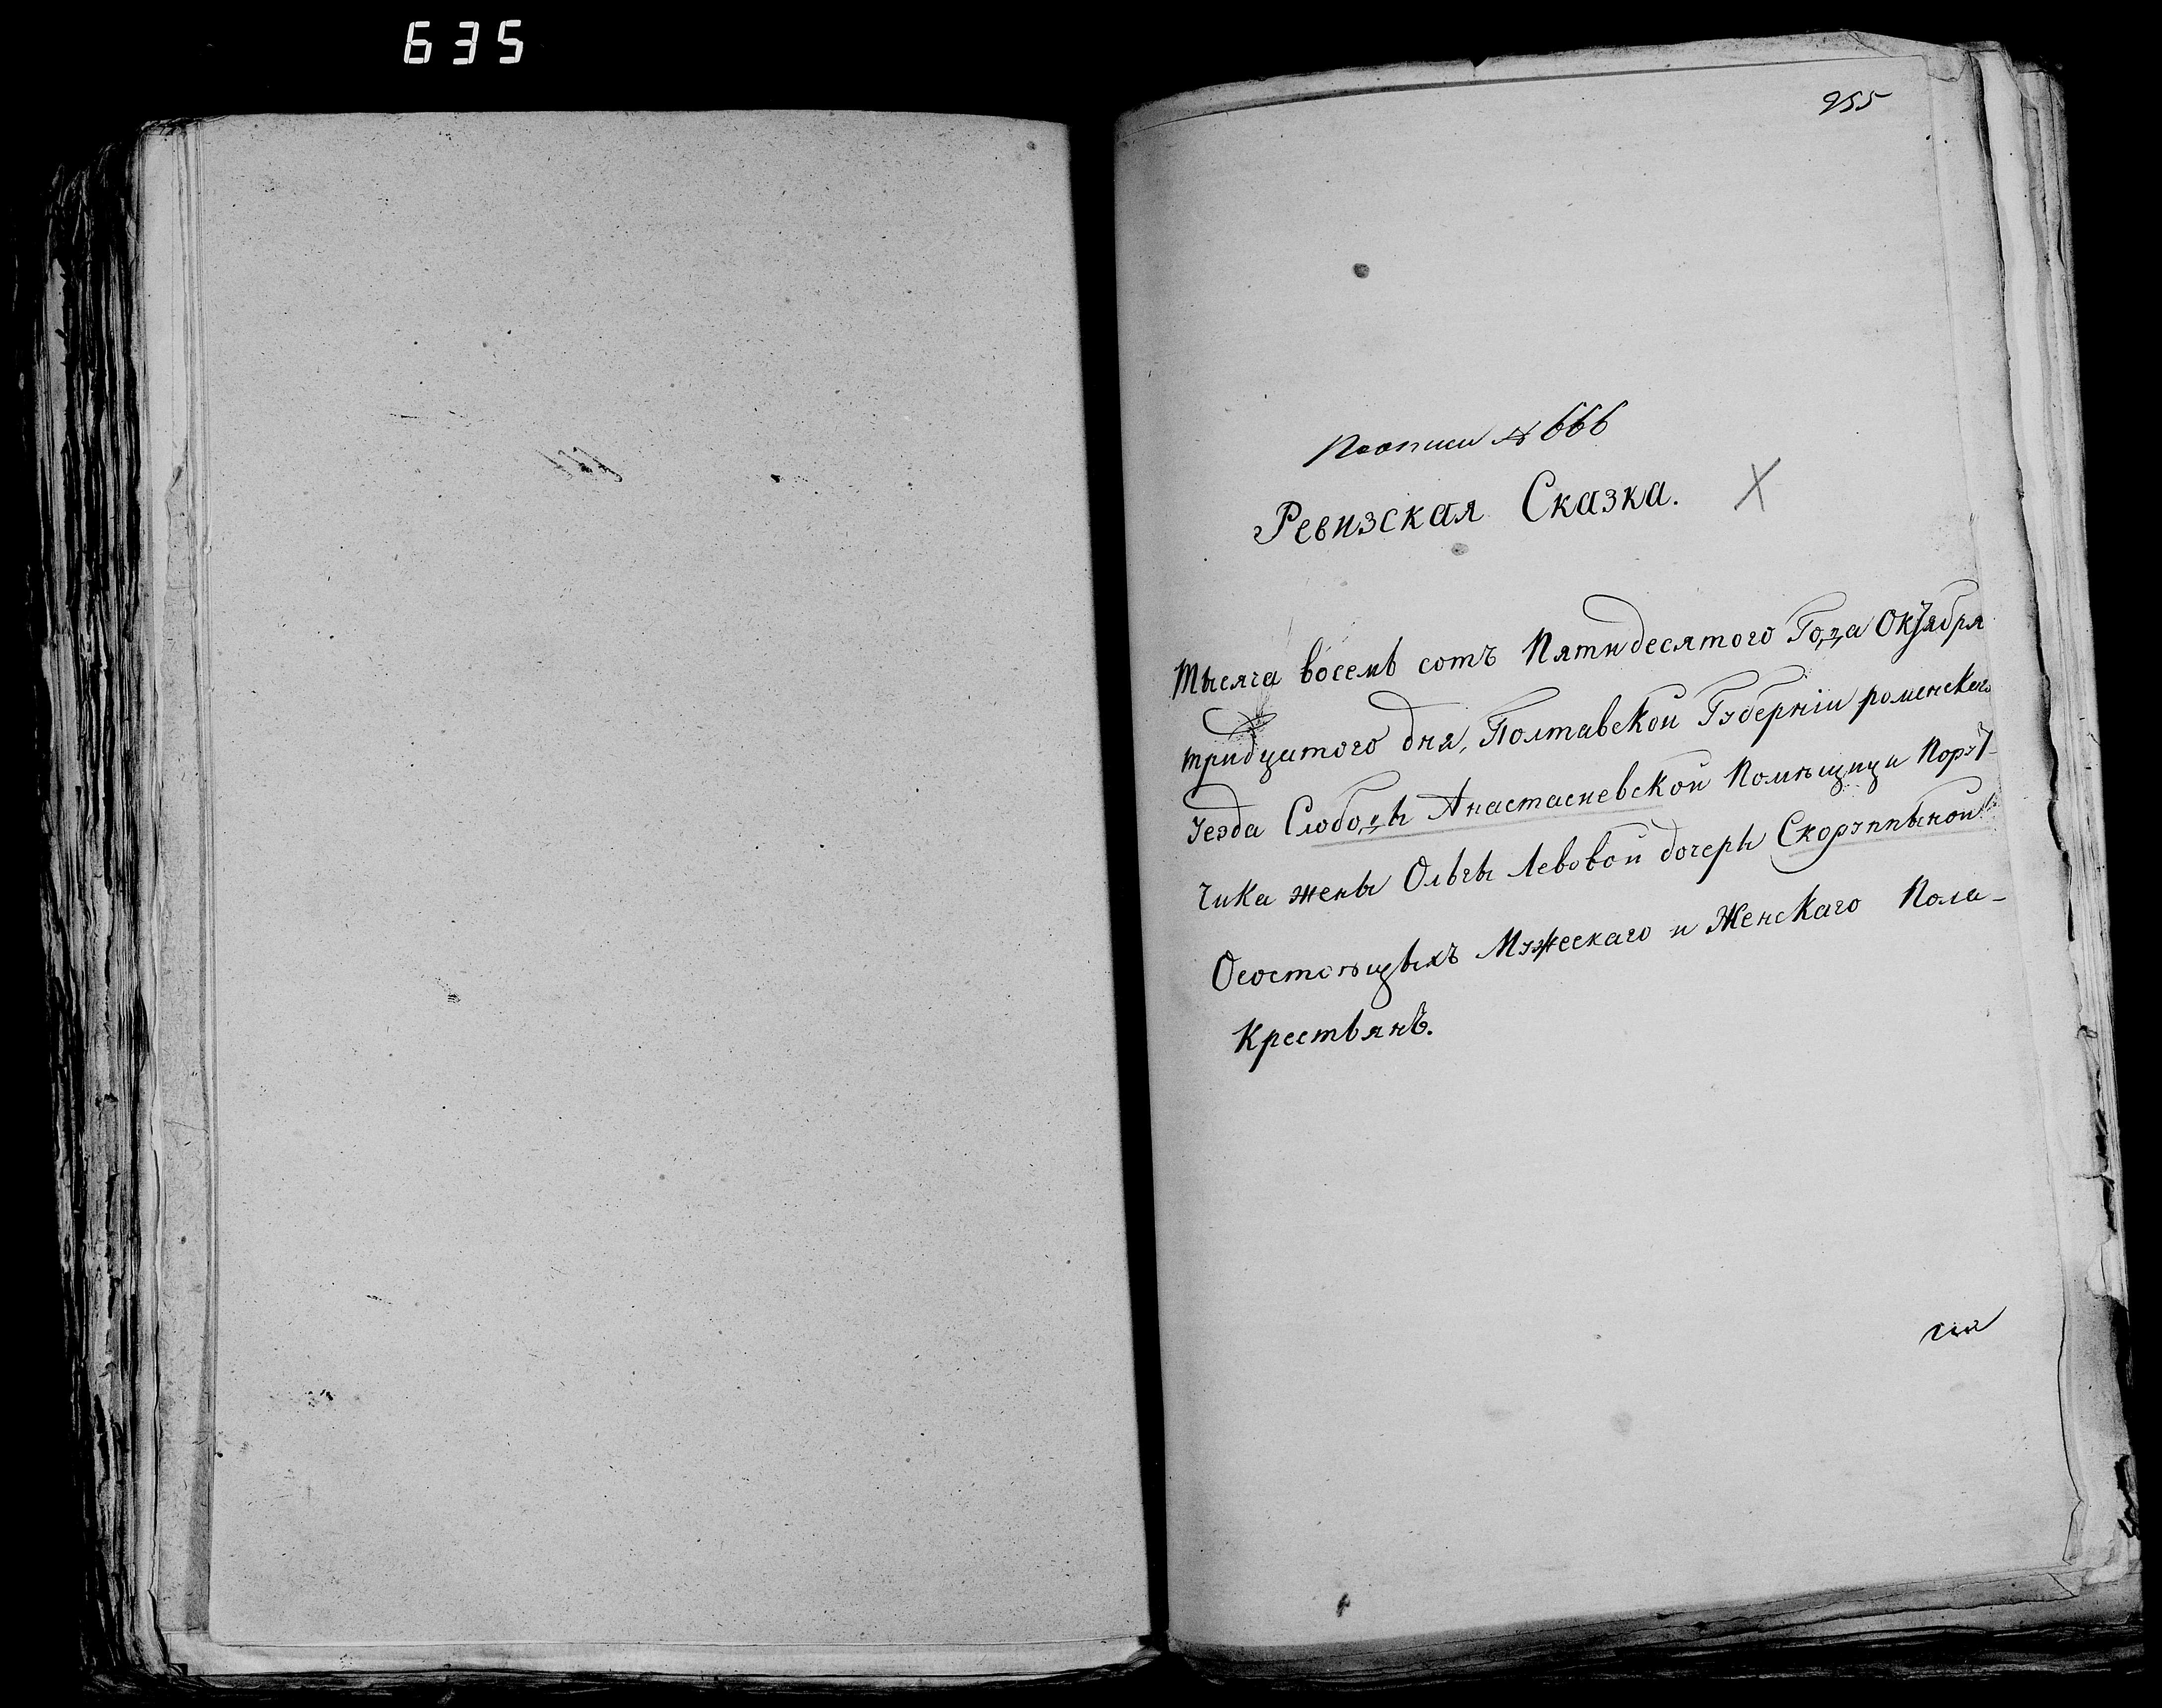 635
955
По описи № 666
Ревизская Сказка.
Тысяча восемь сотъ Пятидесятого Года Октября
тридцатого дня, Полтавской Губерніи роменскаго
уезда Слободы Анастасиевской Помѣщицы Пору-
чика жены Ольги Левовой дочери Скоруппыной
О состоящыхъ Мужескаго и Женскаго Пола-
Крестьянъ.